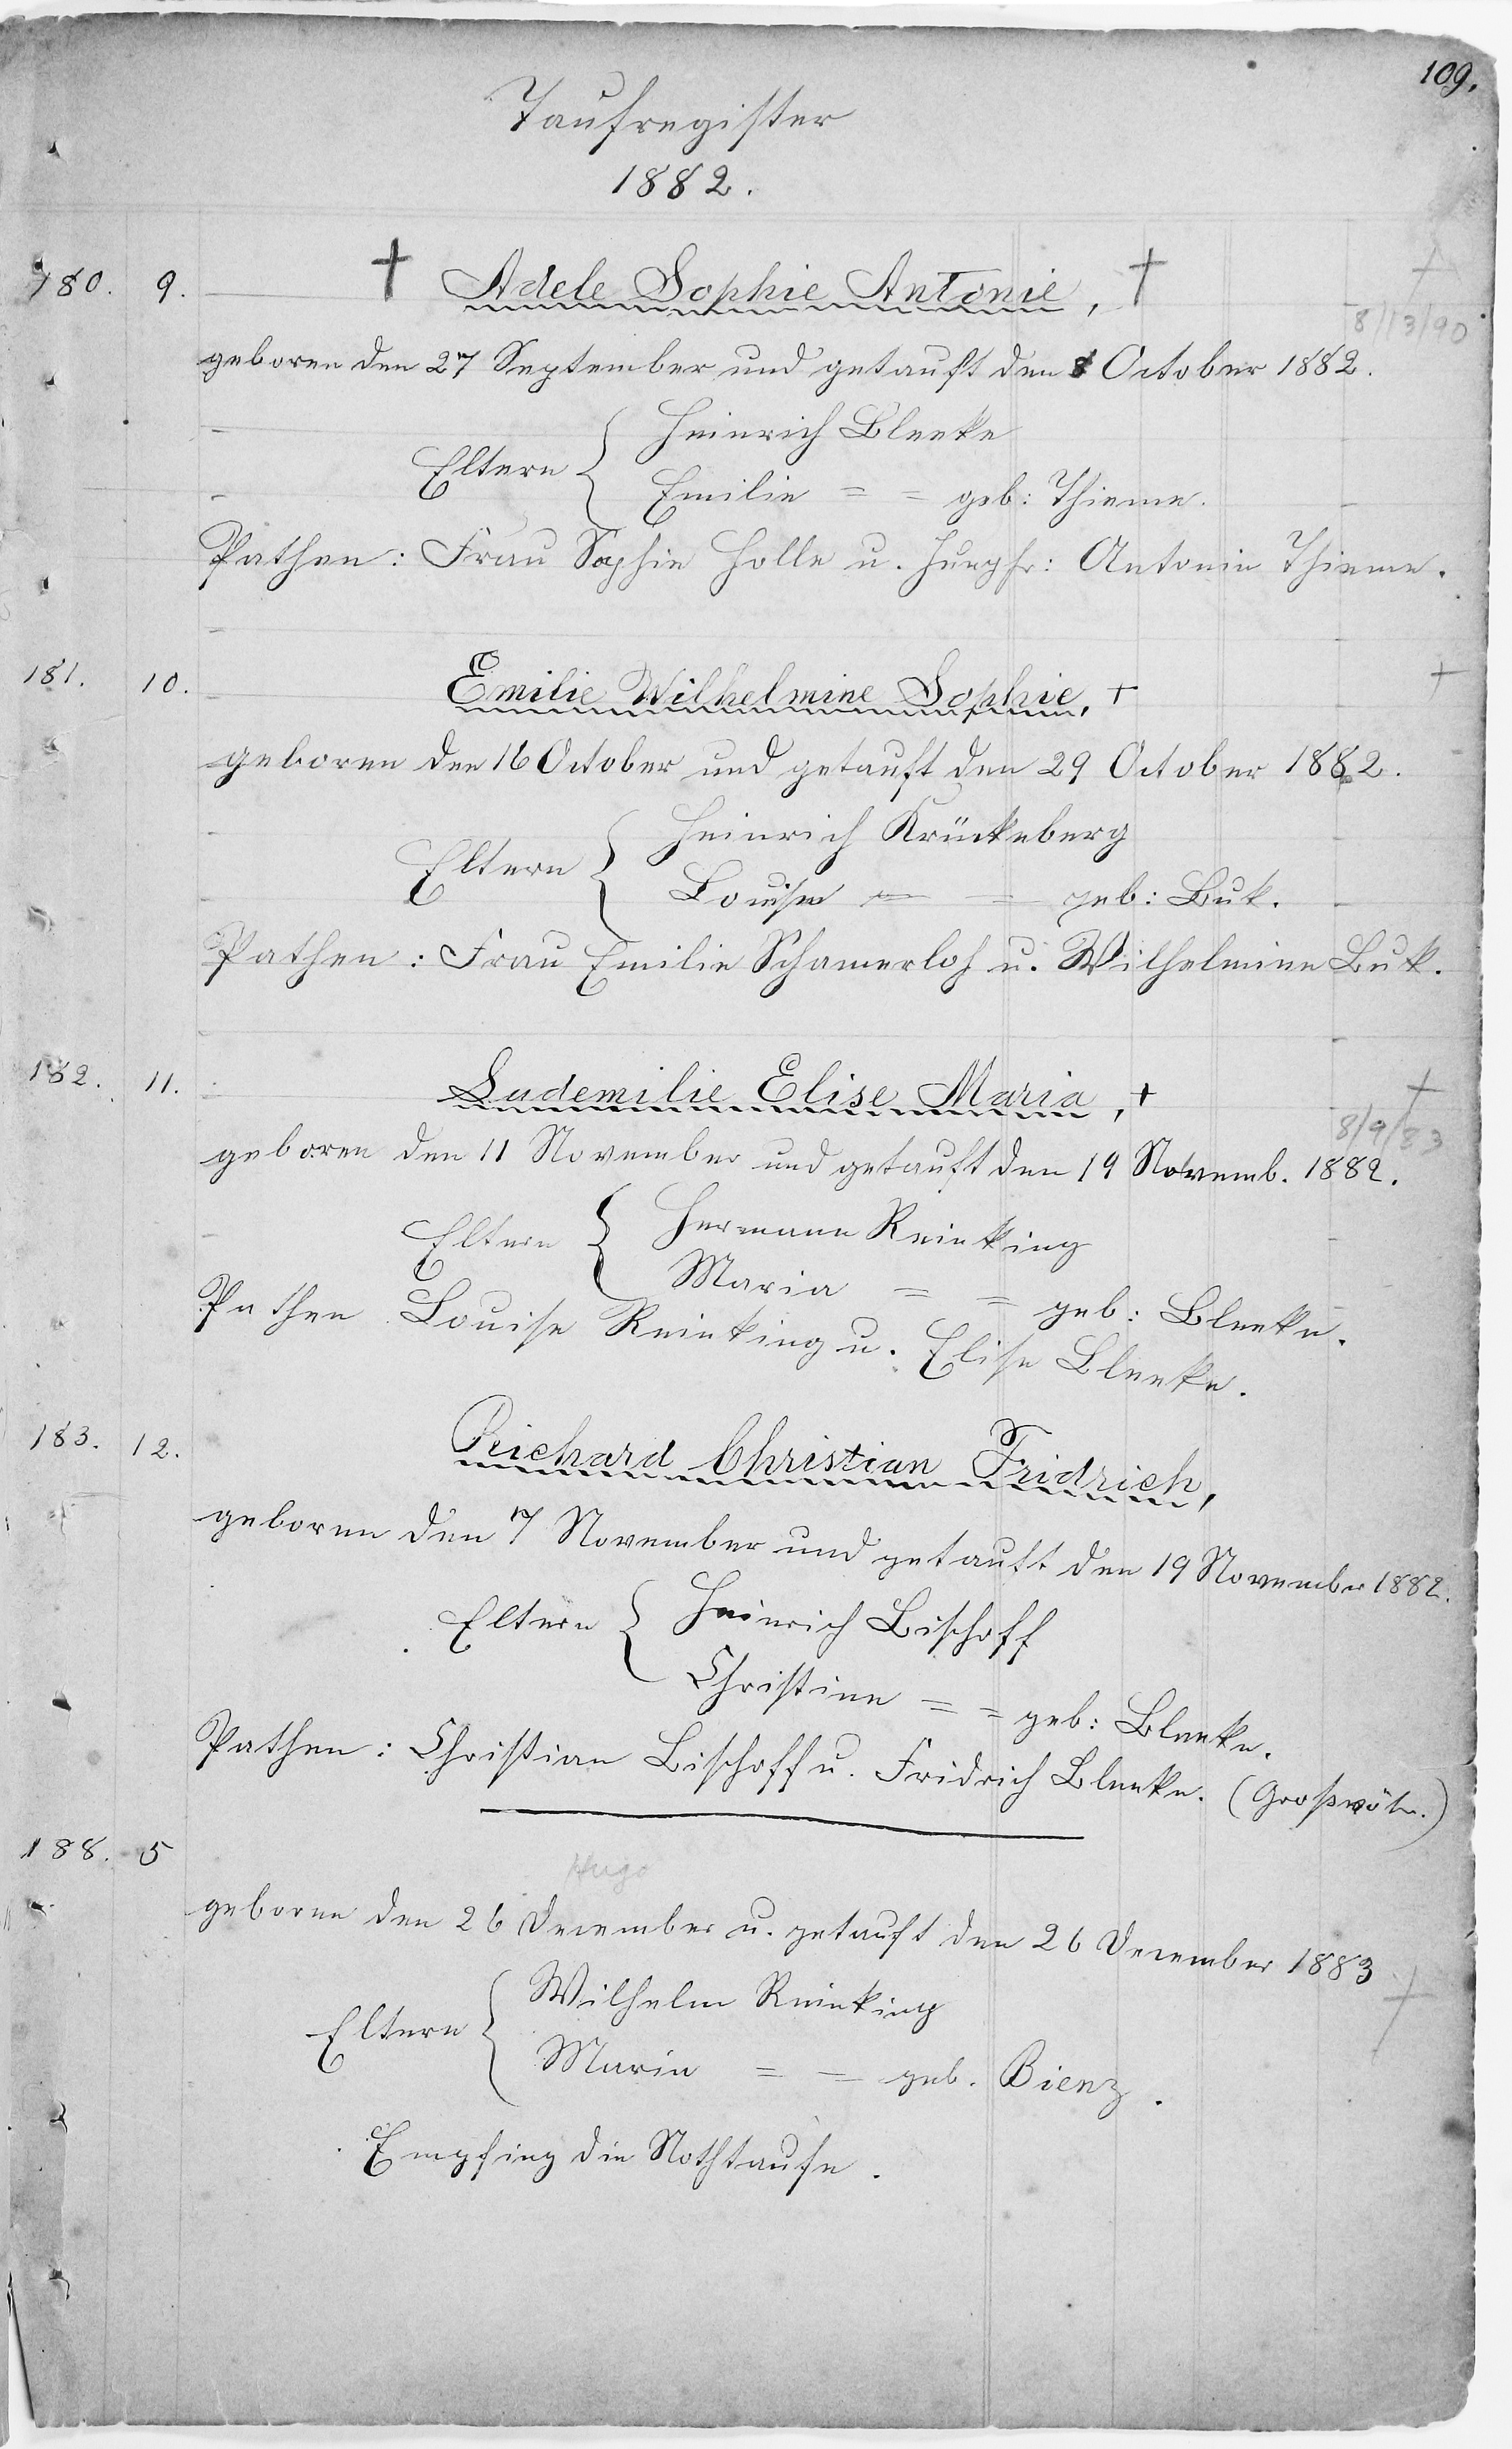 109.
Taufregister
1882.
180. 9. † Adele Sophie Antonie, †
8/13/90
geboren den 27 September und getauft den 8 October 1882.
Heinrich Bleeke
Eltern {
Emilie = = geb: Thieme.
Pathen: Frau Sophie Holle u. Jungfr: Antonie Thieme.
181. 10. Emilie Wilhelmine Sophie, +
geboren den 16 October und getauft den 29 October 1882.
Heinrich Krückeberg
Eltern {
Louise = = geb: Buk.
Pathen: Frau Emilie Schamerloh u. Wilhelmine Buk.
182. 11. Ludemilie Elise Maria, +
8/9/83
geboren den 11 November und getauft den 19 Novemb. 1882.
Hermann Reinking
Eltern {
Maria = = geb: Bleeke.
Pathen Louise Reinking u. Elise Bleeke.
183. 12. Richard Christian Fridrich,
geboren den 7 November und getauft den 19 November 1882.
Heinrich Bischoff
Eltern {
Christine = = geb: Bleeke.
Pathen: Christian Bischoff u. Fridrich Bleeke. (Großvät.)
188. 5
Hugo
geboren den 26 December u. getauft den 26 December 1883
Wilhelm Reinking
Eltern {
Maria = = geb. Bienz.
Empfing die Nothtaufe.